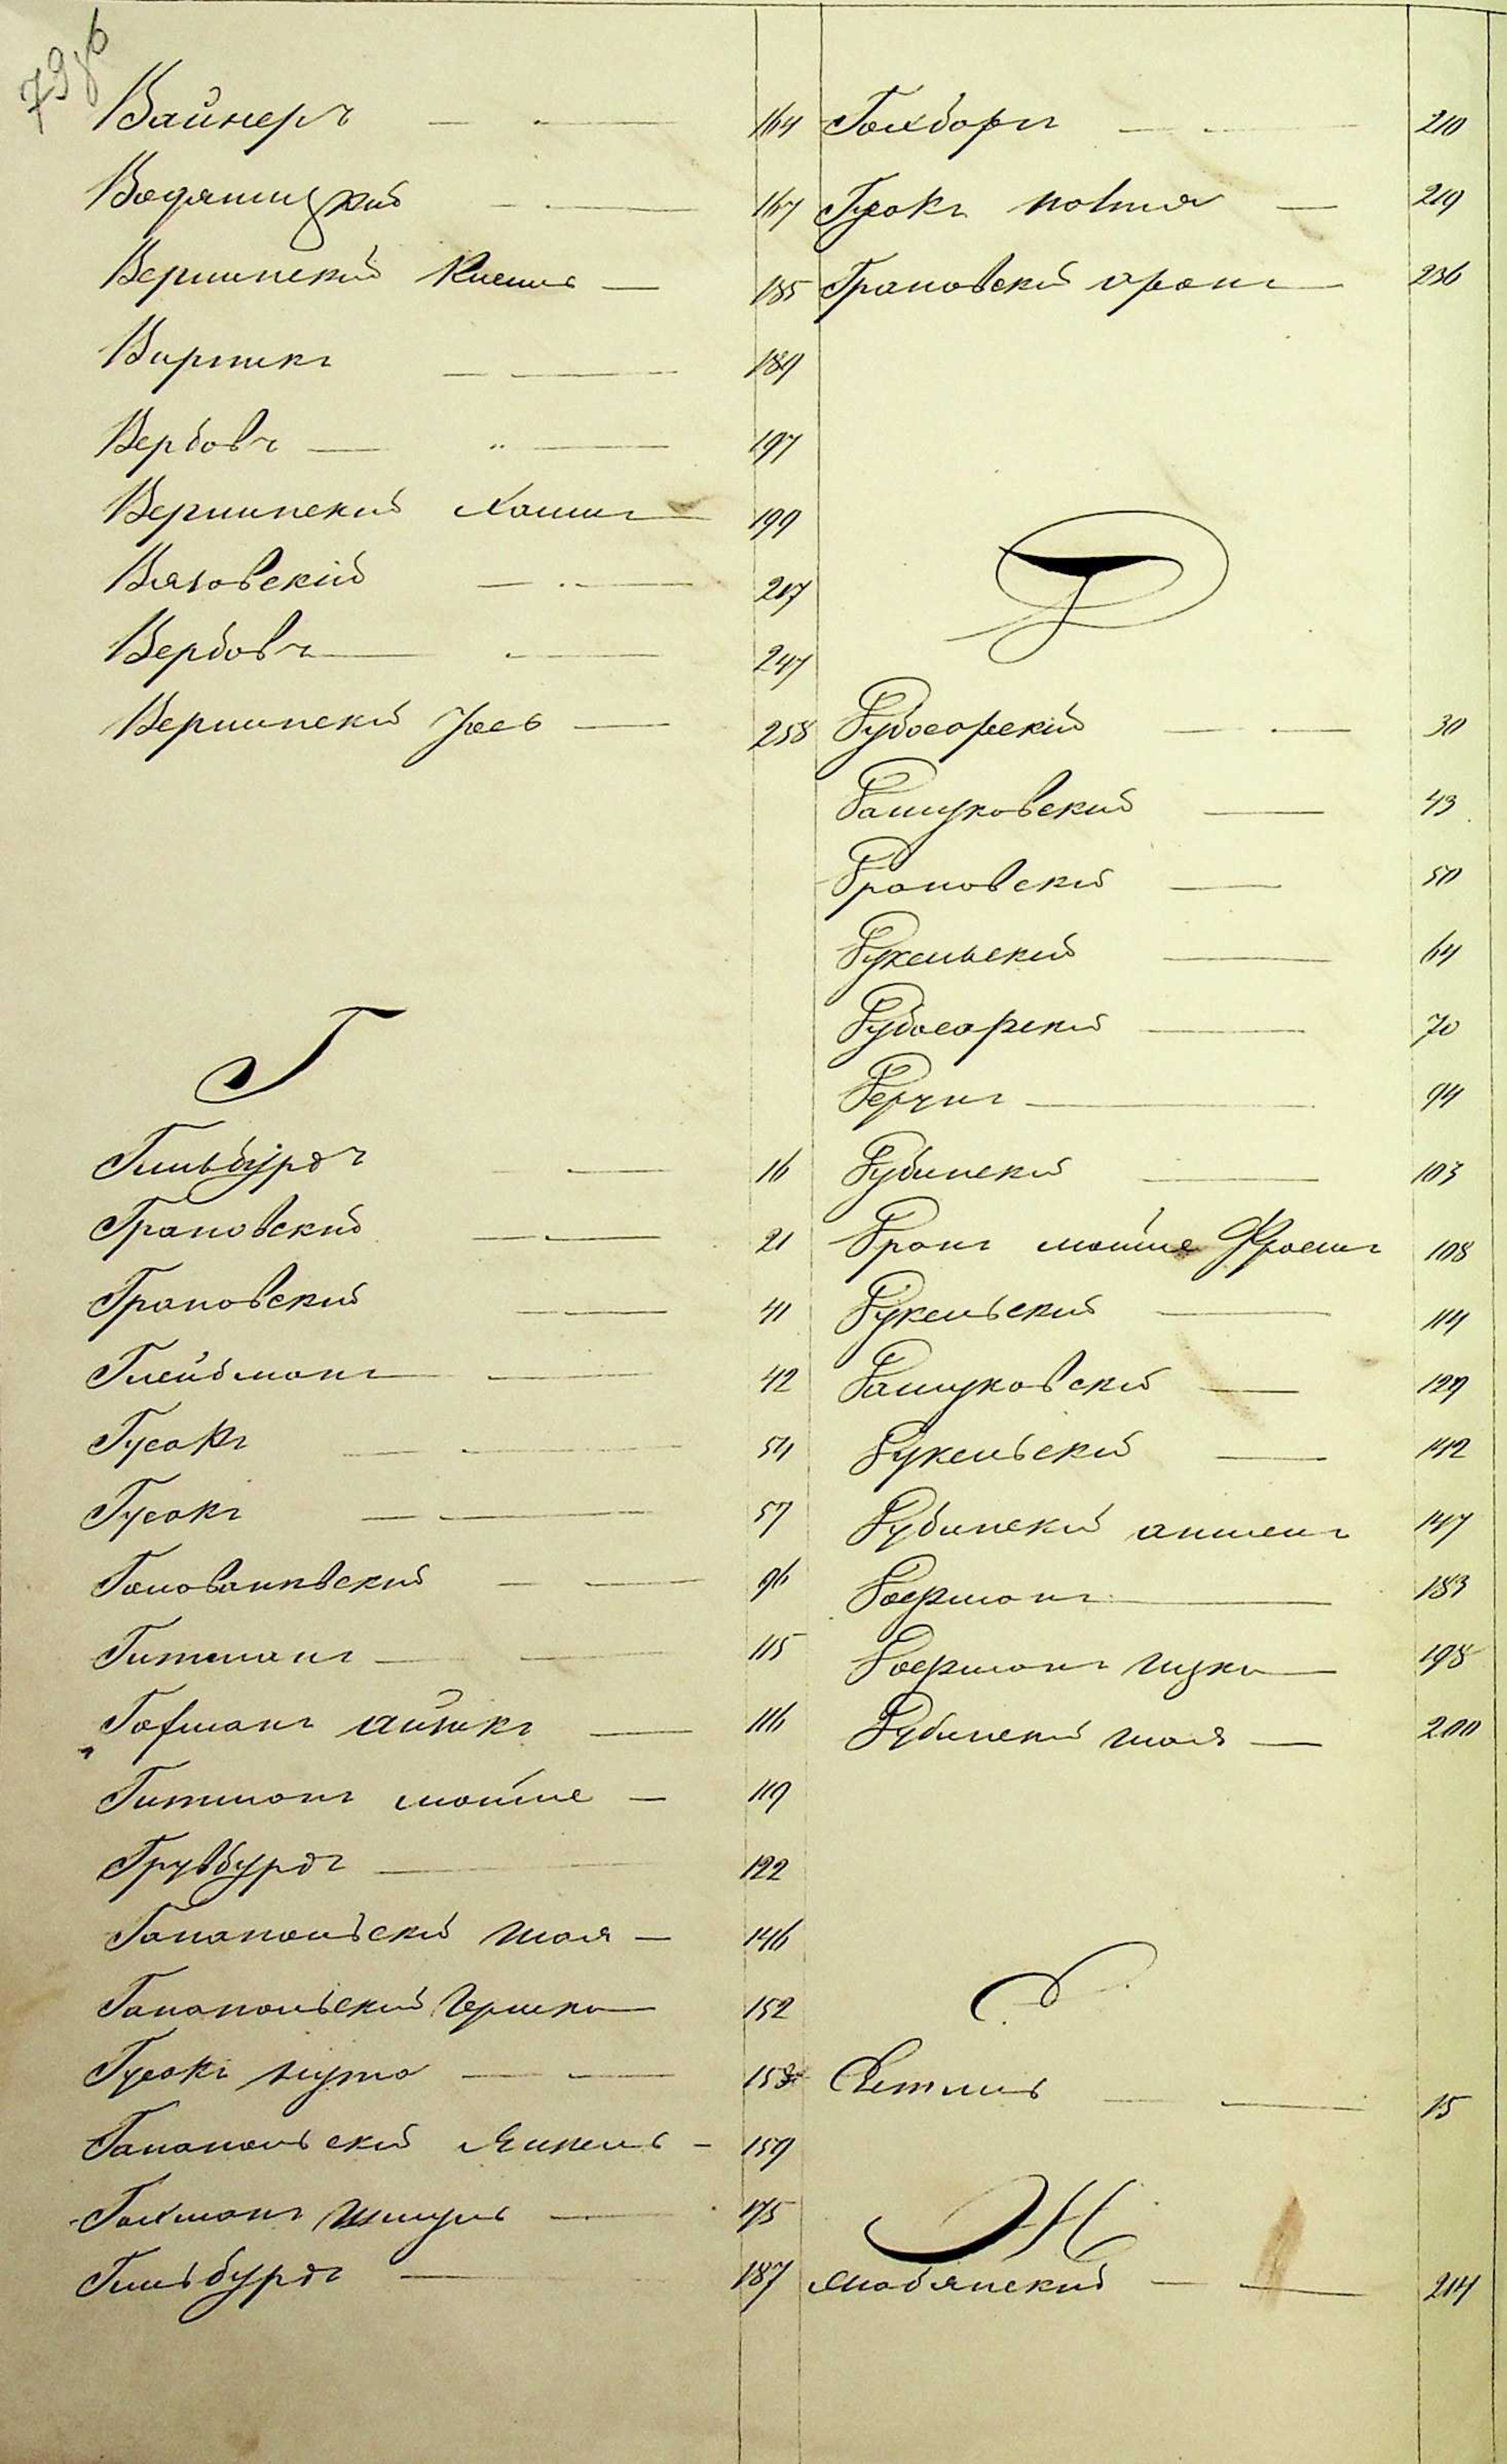 Вайнеръ — 164
Водяницкий — 167
Вершинский Кисиль — 185
Виртикъ — 189
Вербовъ — 197
Вершинский Хаимъ — 199
Вязовский — 207
Вербовъ — 247
Вершинский Иось — 258
Г
Гильбурдъ — 16
Грановский — 21
Грановский — 41
Глейбманъ — 42
Гусакъ — 54
Гусакъ — 57
Голованевский — 96
Гитманъ — 115
Гофманъ Айзикъ — 116
Гитманъ Мошие — 119
Грувбурдъ — 122
Ганапольский Шоля — 146
Ганапольский Гершко — 152
Гусакъ Нута — 153
Ганапольский Янкель — 159
Гохманъ Шмуль — 175
Гильбурдъ — 187
Гохбаръ — 210
Гусакъ — 219
Грановский Аронъ — 236
Д
Дубосарский — 30
Дашуковский — 43
Драновский — 50
Дукельский — 64
Дубосарский — 70
Дерчинъ — 94
Дубинский — 103
Дронъ Мошие Фроимъ — 108
Дукельский — 114
Дашуковский — 129
Дукельский — 142
Дубинский Аншель — 147
Доерманъ — 183
Доерманъ Ицко — 198
Дубинский — 200
Е
Ентинъ — 15
Ж
Жабянский — 214